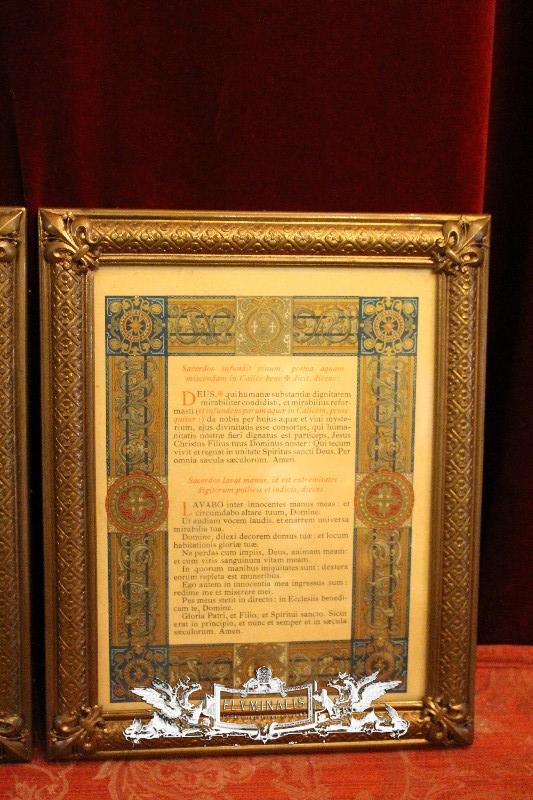 Sacerdos infundit vinum, postea aquam
miscendam in Calice bene ✠ dicit, dicens
DEUS, ✠ qui humanæ substantiæ dignitatem
mirabiliter condidisti, et mirabilius refor-
masti (et infundens parum aquæ in Calicem, prose-
quitur :) da nobis per hujus aquæ et vini myste-
rium, ejus divinitatis esse consortes, qui huma-
nitatis nostræ fieri dignatus est particeps, Jesus
Christus Filius tuus Dominus noster : Qui tecum
vivit et regnat in unitate Spiritus sancti Deus. Per
omnia sæcula sæculorum. Amen.
Sacerdos lavat manus, id est extremitates
digitorum pollicis et indicis, dicens
LAVABO inter innocentes manus meas : et
circumdabo altare tuum, Domine.
Ut audiam vocem laudis, et enarrem universa
mirabilia tua.
Domine, dilexi decorem domus tuæ : et locum
habitationis gloriæ tuæ.
Ne perdas cum impiis, Deus, animam meam :
et cum viris sanguinum vitam meam.
In quorum manibus iniquitates sunt : dextera
eorum repleta est muneribus.
Ego autem in innocentia mea ingressus sum :
redime me et miserere mei.
Pes meus stetit in directo : in Ecclesiis benedi-
cam te, Domine.
Gloria Patri, et Filio, et Spiritui sancto. Sicut
erat in principio, et nunc et semper et in sæcula
sæculorum. Amen.
FLVMINALIS